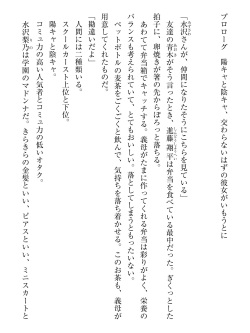 プロローグ　陽キャと陰キャ、交わらないはずの彼女がいもうとに
「水沢さんが、仲間になりたそうにこちらを見ている」
友達の青木がそう言ったとき、進藤翔平は弁当を食べている最中だった。ぎくっとした
拍子に、卵焼きが箸の先からぽろっと落ちる。
あわてて弁当箱でキャッチする。義母がたまに作ってくれる弁当は彩りがよく、栄養の
バランスも考えられていて、とてもおいしい。落としてしまうともったいない。
ペットボトルの麦茶をごくごくと飲んで、気持ちを落ち着かせる。このお茶も、義母が
用意してくれたものだ。
「勘違いだよ」
人間には二種類いる。
スクールカースト上位と下位。
陽キャと陰キャ。
コミュ力の高い人気者とコミュ力の低いオタク。
水沢梨乃は学園のマドンナだ。きらきらの金髪といい、ピアスといい、ミニスカートと